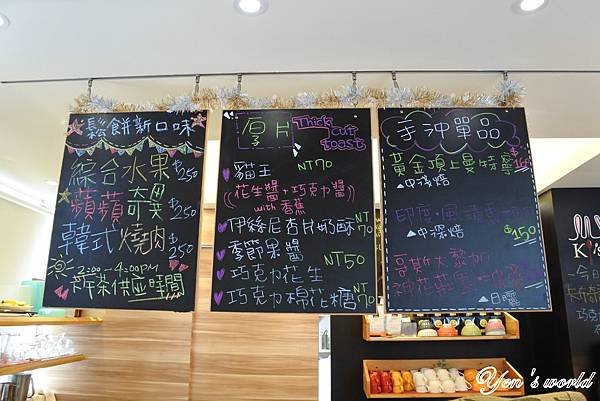 鬆餅新口味
綜合水果 $250
蘋蘋 $250
韓式燒肉 $250
2:00-4:00PM
下午茶供應時間
厚片
Thick cut toast
貓王 NT70
(花生醬+巧克力醬)
with 香蕉
伊絲尼杏片奶酥 NT70
季節果醬 NT50
巧克力花生
巧克力棉花糖 NT70
手沖單品
黃金頂上曼特寧
▲中深焙
印度・風漬
▲中深焙 $150
哥斯大黎加
▲日曬
K
今日
巧克
Yen's world